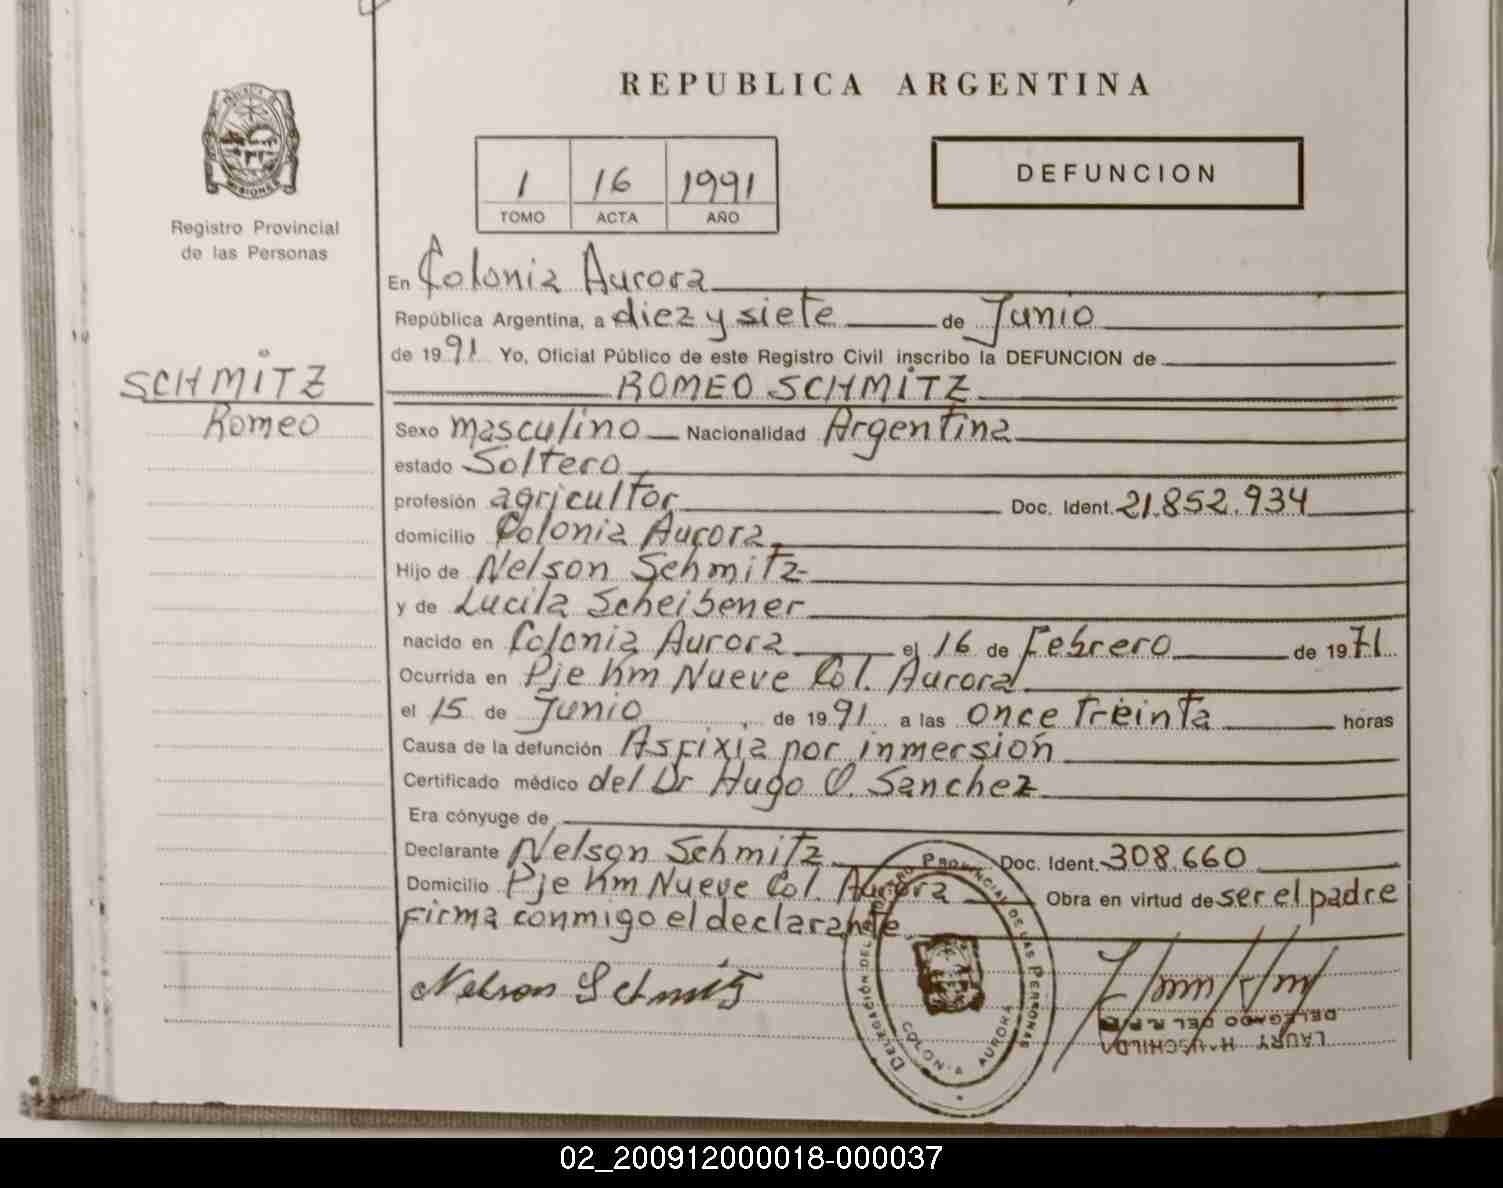 REPUBLICA ARGENTINA
MISIONES
Registro Provincial
de las Personas
1 16 1991
TOMO ACTA AÑO
DEFUNCION
En Colonia Aurora
República Argentina, a diez y siete de Junio
de 1991 Yo, Oficial Público de este Registro Civil inscribo la DEFUNCION de
SCHMITZ
Romeo
ROMEO SCHMITZ
Sexo masculino Nacionalidad Argentina
estado Soltero
profesión agricultor Doc. Ident. 21.852.934
domicilio Colonia Aurora
Hijo de Nelson Schmitz
y de Lucila Scheibener
nacido en Colonia Aurora el 16 de Febrero de 1971
Ocurrida en Pje Km Nueve Col. Aurora
el 15 de Junio, de 1991 a las once treinta horas
Causa de la defunción Asfixia por inmersión
Certificado médico del Dr Hugo O. Sanchez
Era cónyuge de
Declarante Nelson Schmitz Doc. Ident. 308.660
Domicilio Pje Km Nueve Col. Aurora Obra en virtud de ser el padre
Firma conmigo el declarante
Nelson Schmitz
DELEGACIÓN DEL REGISTRO PROVINCIAL DE LAS PERSONAS
COLONIA AURORA
DELEGADO DEL R.P.P.
LAURY
02_200912000018-000037